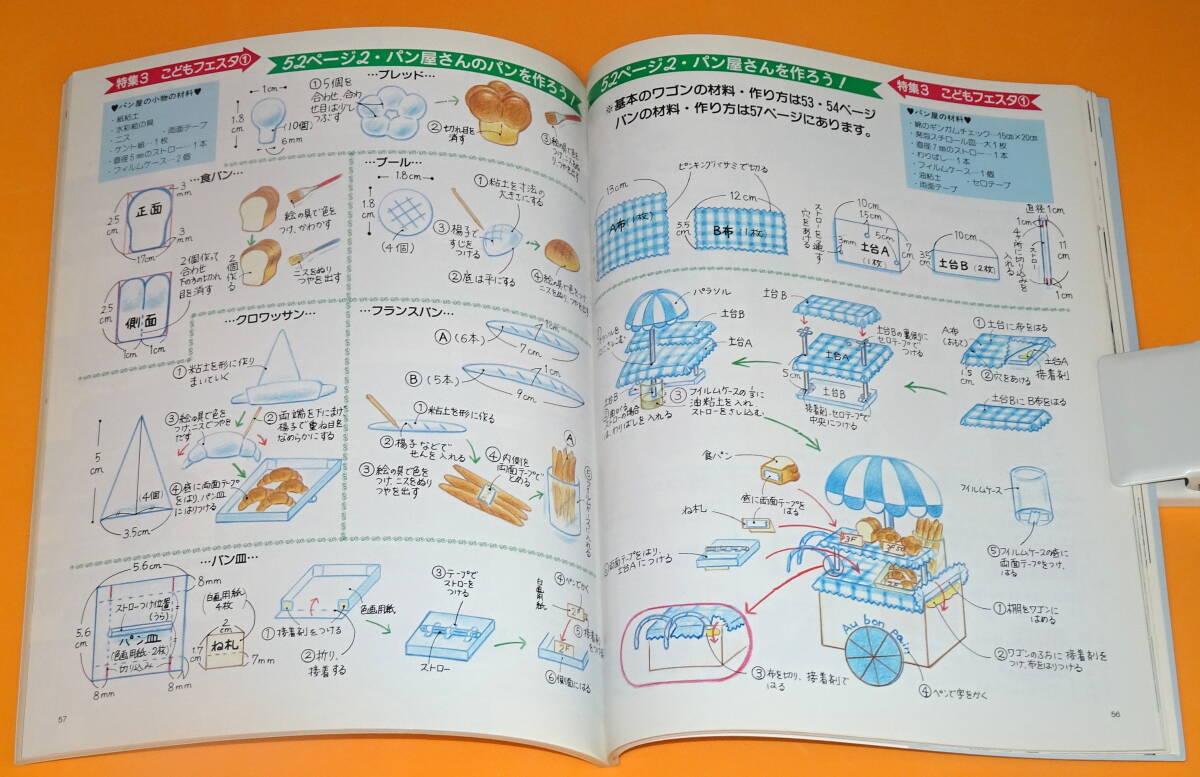 特集3 こどもフェスタ①
52ページ2・パン屋さんのパンを作ろう!
♥パン屋の小物の材料♥
・紙粘土
・水彩絵の具
・ニス ・両面テープ
・ケント紙…1枚
・直径5mmのストロー…1本
・フィルムケース…2個
1cm
1.8cm
(10個)
6mm
…ブレッド…
①5個を
合わせ、合わ
せ目をより
つぶす
②切れ目を
消す
…食パン…
3mm
正面
2.5cm
3mm
17cm
絵の具で色を
つけ、かわかす
2個作って
合わせ
下の方の切れ
目を消す
2個作る
ニスをぬり
つやを出す
2.5cm
側面
1cm
1cm
…ブール…
1.8cm
1.8cm
(4個)
①粘土を寸法の
大きさにする
③楊子で
すじを
つける
②底は平にする
④絵の具で色をつけ
ニスをぬり、つやを出す
…クロワッサン…
①粘土を形に作り
まいていく
③絵の具で色を
つけ、ニスでつやを
だす
②両端を下にまげ
楊子で重ね目を
なめらかにする
5cm
(4個)
3.5cm
④底に両面テープ
をはり、パン皿
にはりつける
…フランスパン…
Ⓐ(6本)
1cm
7cm
Ⓑ(5本)
1cm
9cm
①粘土を形に作る
②楊子などで
せんを入れる
③絵の具で色を
つけ、ニスをぬり
つやを出す
④内側を
両面テープで
とめる
Ⓐ
…パン皿…
5.6cm
8mm
ストローつけ位置
(うら)
パン皿
(色画用紙・2枚)
切り込み
5.6cm
8mm
8mm
(白画用紙)
4枚
2cm
ね札
1.7cm
7mm
色画用紙
①接着剤をつける
②折り、
接着する
③テープで
ストローを
つける
ストロー
白画用紙
④ペンでかく
⑤接着剤
をつける
⑥側面にはる
57
52ページ2・パン屋さんを作ろう!
特集3 こどもフェスタ①
※基本のワゴンの材料・作り方は53・54ページ
パンの材料・作り方は57ページにあります。
♥パン屋の材料♥
・綿のギンガムチェック…15cm×20cm
・発泡スチロール皿…大1枚
・直径7mmのストロー…1本
・わりばし…1本
・フィルムケース…1個
・油粘土 ・セロテープ
・両面テープ
ピンキングバサミで切る
13cm
A布(1枚)
12cm
5.5cm
B布(1枚)
ストローを通す
穴をあける
10cm
1.5cm
5cm
3mm
土台A
(1枚)
7cm
10cm
3.5cm
土台B(2枚)
直径1cm
1cm
4ヶ所切り込みを
入れる
ストロー
11cm
1cm
パラソル
土台B
土台A
土台B
③フィルムケースの1/3に
油粘土を入れ
ストローをさし込む
土台B
土台Bの裏側に
セロテープで
つける
土台A
5cm
土台B
接着剤・セロテープで
中央につける
①土台に布をはる
A布
(おもて)
土台A
接着剤
1.5cm
②穴をあける
土台BにB布をはる
食パン
底に両面テープを
はる
ね札
両面テープをはり、
土台Aにつける
フィルムケース
⑤フィルムケースの底に
両面テープをつけ、
はる
①棚をワゴンに
はめる
②ワゴンのふちに接着剤を
つけ、布をはりつける
③布を切り、接着剤で
はる
Au bon pain
④ペンで字をかく
56